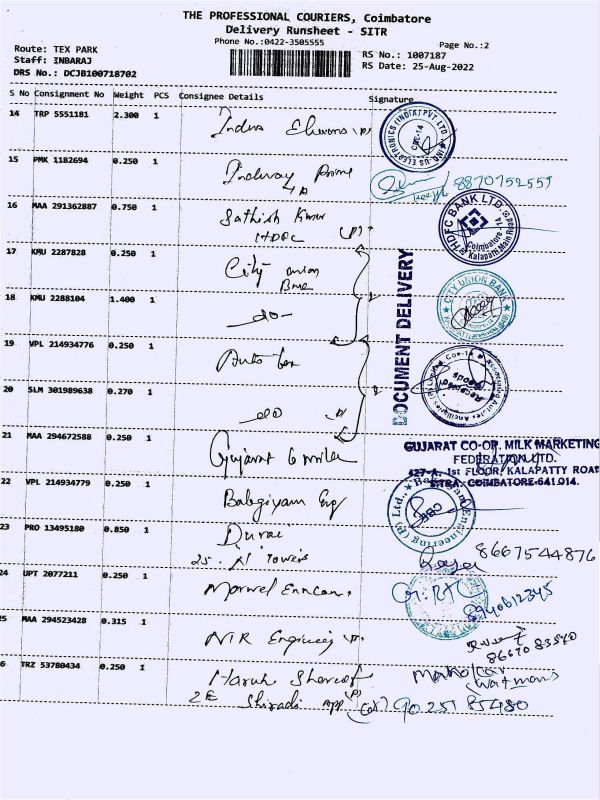 THE PROFESSIONAL COURIERS, Coimbatore
Delivery Runsheet - SITR
Phone No.:0422-3505555
Page No.:2
Route: TEX PARK
RS No.: 1007187
Staff: INBARAJ
RS Date: 25-Aug-2022
DRS No.: DCJB100718702
S No Consignment No Weight PCS Consignee Details Signature
14 TRP 5551181 2.300 1 Indus
15 PMK 1182694 0.250 1
8870752551
16 MAA 291362887 0.750 1 Sathish Kumar
HDFC
HDFC BANK LTD.
Coimbatore - 14
Kalapatti Main Road
17 KMU 2287828 0.250 1 City union
Bank
CITY UNION BANK
18 KMU 2288104 1.400 1 -do-
DOCUMENT DELIVERY
19 VPL 214934776 0.250 1 Auto tex
20 SLM 301989638 0.270 1 -do
21 MAA 294672588 0.250 1 Gujarat Co milk
GUJARAT CO-OP. MILK MARKETING
FEDERATION LTD.
427-A, 1st FLOOR, KALAPATTY ROAD
SITRA, COIMBATORE-641 014.
22 VPL 214934779 0.250 1
23 PRO 13495180 0.850 1 Durai
25. Towers
8667544876
24 UPT 2077211 0.250 1
8940612345
25 MAA 294523428 0.315 1 NTR Engineering
86670 83840
6 TRZ 53780434 0.250 1 Harish
2E Shiradi App
90 251 85480